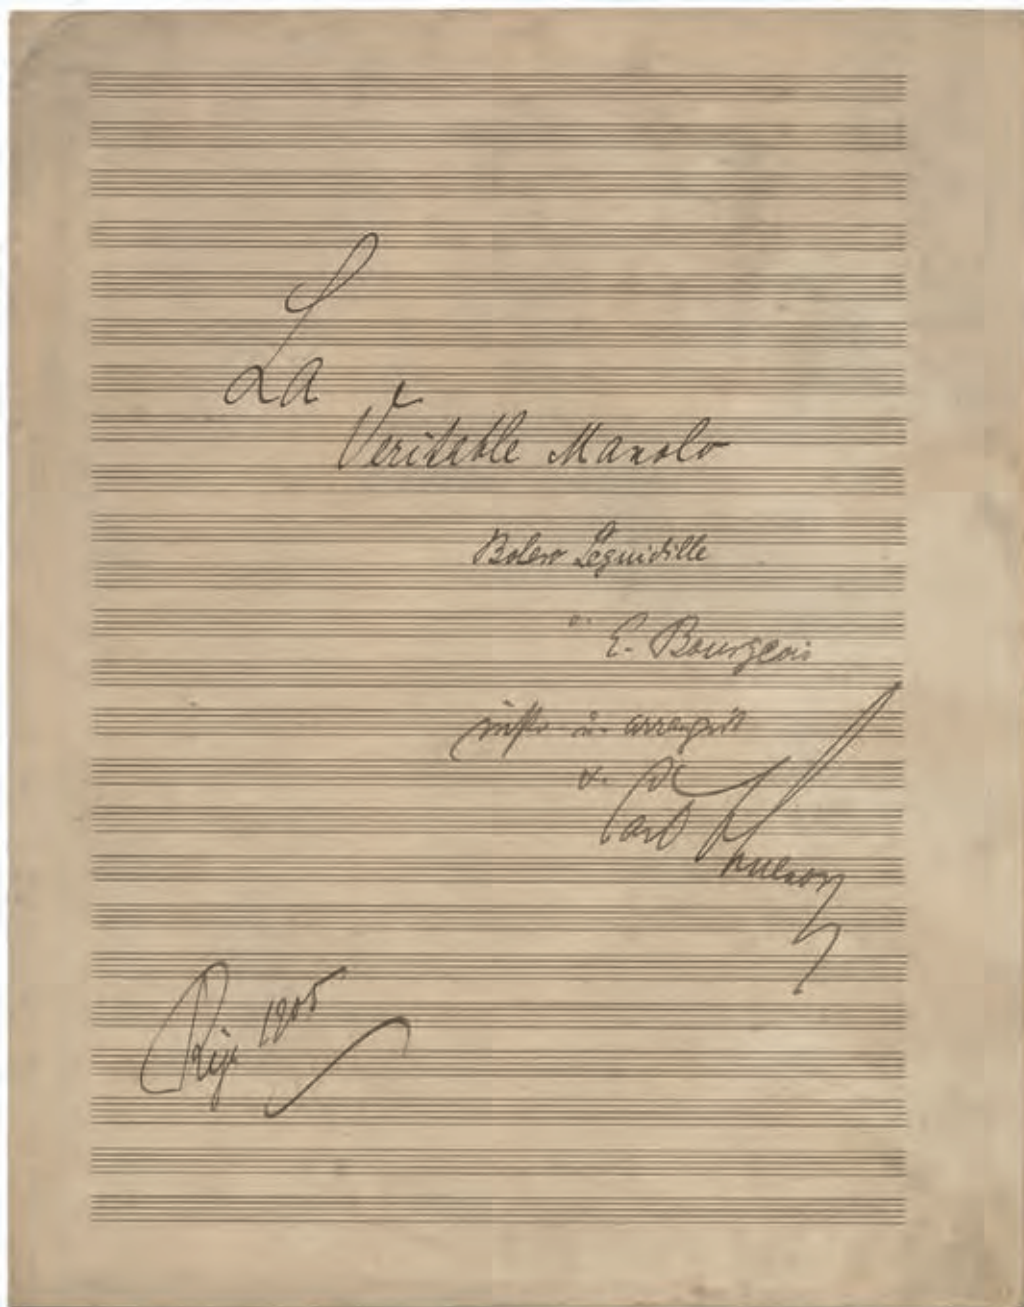 La
Veritable Manolo
Bolero Seguidille
v. E. Bourgeois
u. arrangirt
v.
Carl
Riga 1905